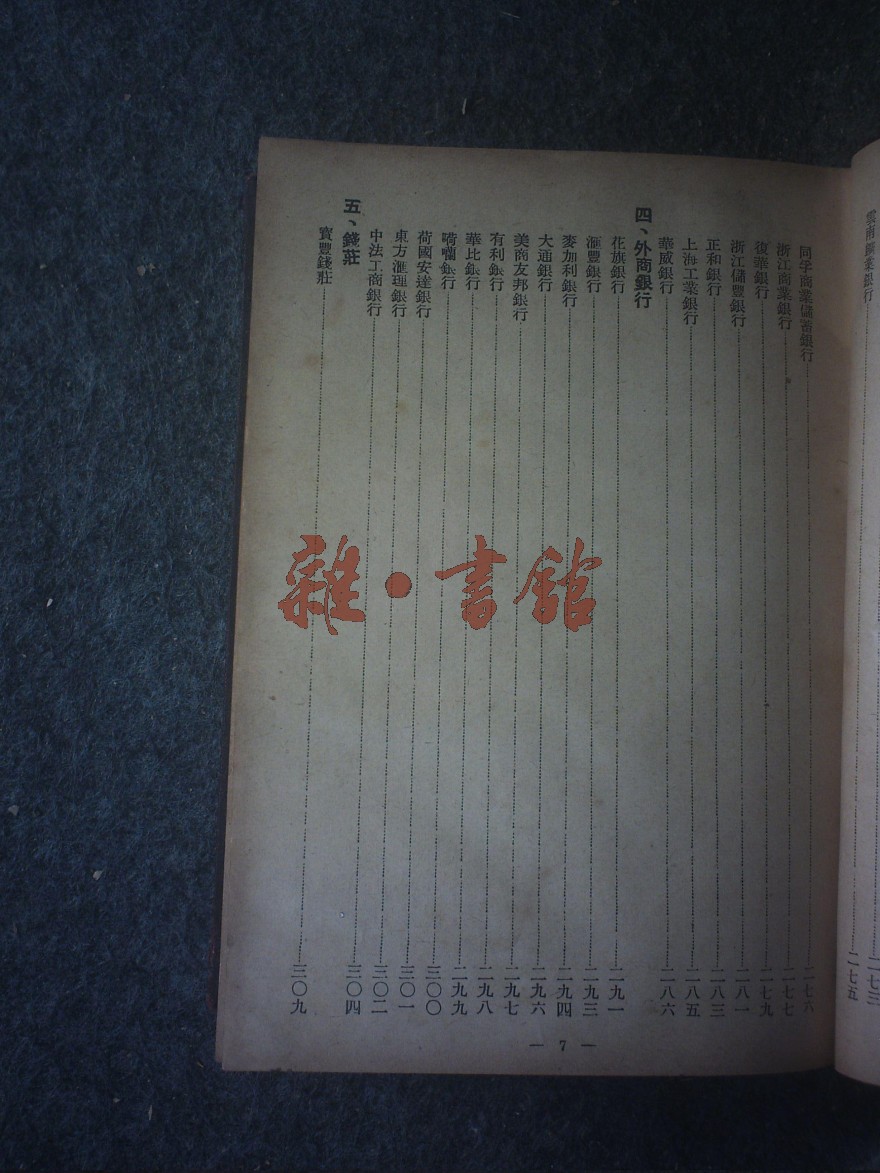 雲南鑛業銀行
二七三
二七五
同孚商業儲蓄銀行 二七六
浙江商業銀行 二七七
復華銀行 二七九
浙江儲豐銀行 二八一
正和銀行 二八三
上海工業銀行 二八五
華威銀行 二八六
四、外商銀行
花旗銀行 二九一
滙豐銀行 二九三
麥加利銀行 二九四
大通銀行 二九六
美商友邦銀行 二九七
有利銀行 二九八
華比銀行 二九九
荷國安達銀行 三〇〇
東方滙理銀行 三〇一
中法工商銀行 三〇二
五、錢莊 三〇四
寶豐錢莊 三〇九
— 7 —
雜·書館